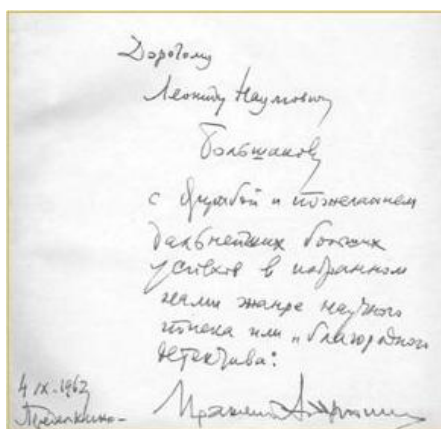 Дорогому
Леониду Наумовичу
Большакову
с дружбой и пожеланием
дальнейших больших
успехов в избранном
нами жанре научного
поиска или „благородного
детектива:
Ираклий Андроников
4 IX. 1962
Переделкино-